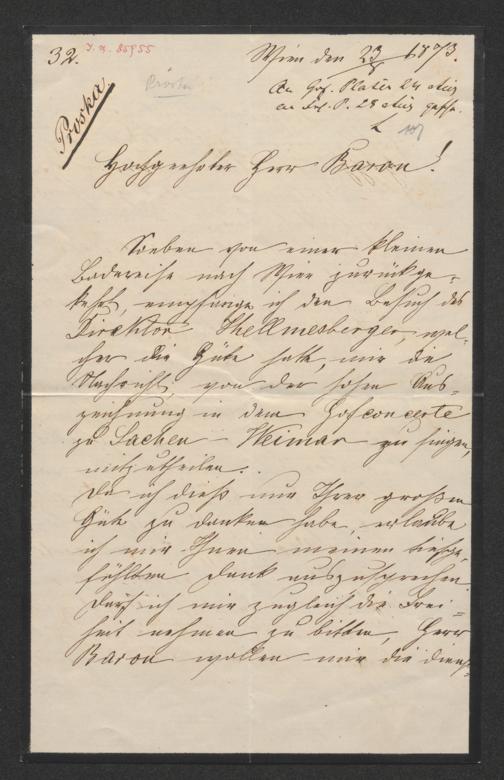 32. I. N. 85955
Wien den 23/8 1873.
Proska
Proska
Hochgeehrter Herr Baron!
Soeben von einer kleinen
Badereise nach Wien zurückge-
kehrt, empfange ich den Besuch des
Direktor Hellmesberger, wel-
cher die Güte hatte, mir die
Nachricht, von der hohen Aus-
zeichnung in dem Hofconcerte
zu Sachen-Weimar zu singen,
mitzutheilen.
Da ich dieß nur Ihrer großen
Güte zu danken habe, erlaube
ich mir Ihnen meinen tiefge-
fühlten Dank auszusprechen
Darf ich mir zugleich die Frei-
heit nehmen zu bitten, Herr
Baron wollen mir die dienst-